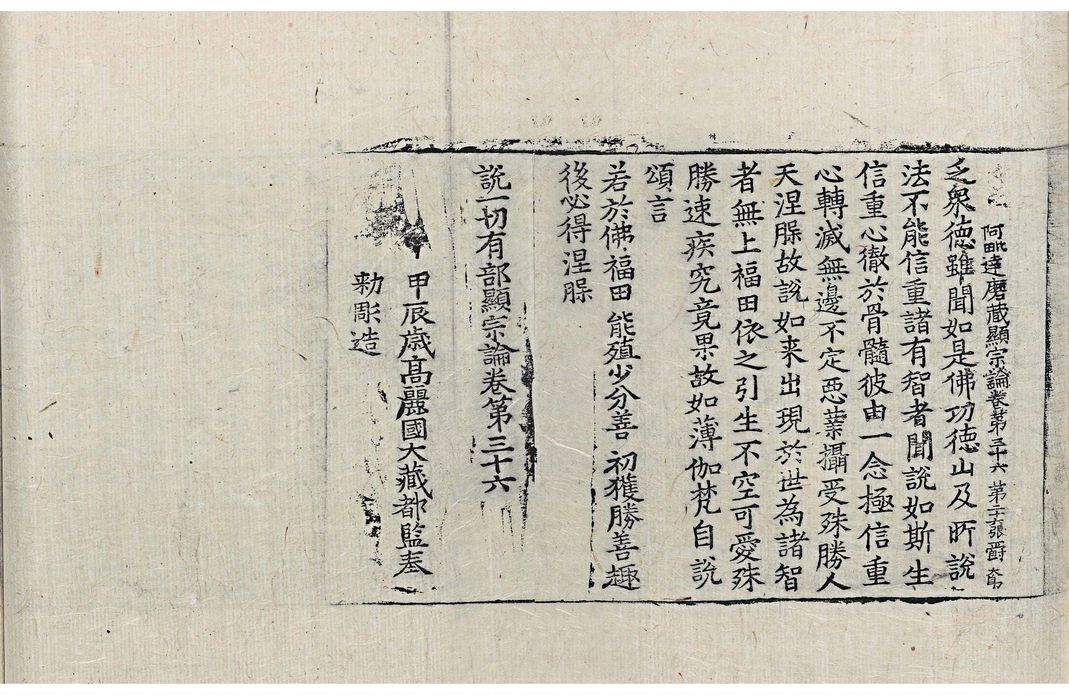 阿毗達磨藏顯宗論卷第三十六 第二十張 爵
乏衆德雖聞如是佛功德山及所說
法不能信重諸有智者聞說如斯生
信重心徹於骨髓彼由一念極信重
心轉滅無邊不定惡業攝受殊勝人
天涅槃故說如来出現於世為諸智
者無上福田依之引生不空可愛殊
勝速疾究竟果故如薄伽梵自說
頌言
若於佛福田 能殖少分善 初獲勝善趣
後必得涅槃
說一切有部顯宗論卷第三十六
甲辰歲高麗國大藏都監奉
勅彫造